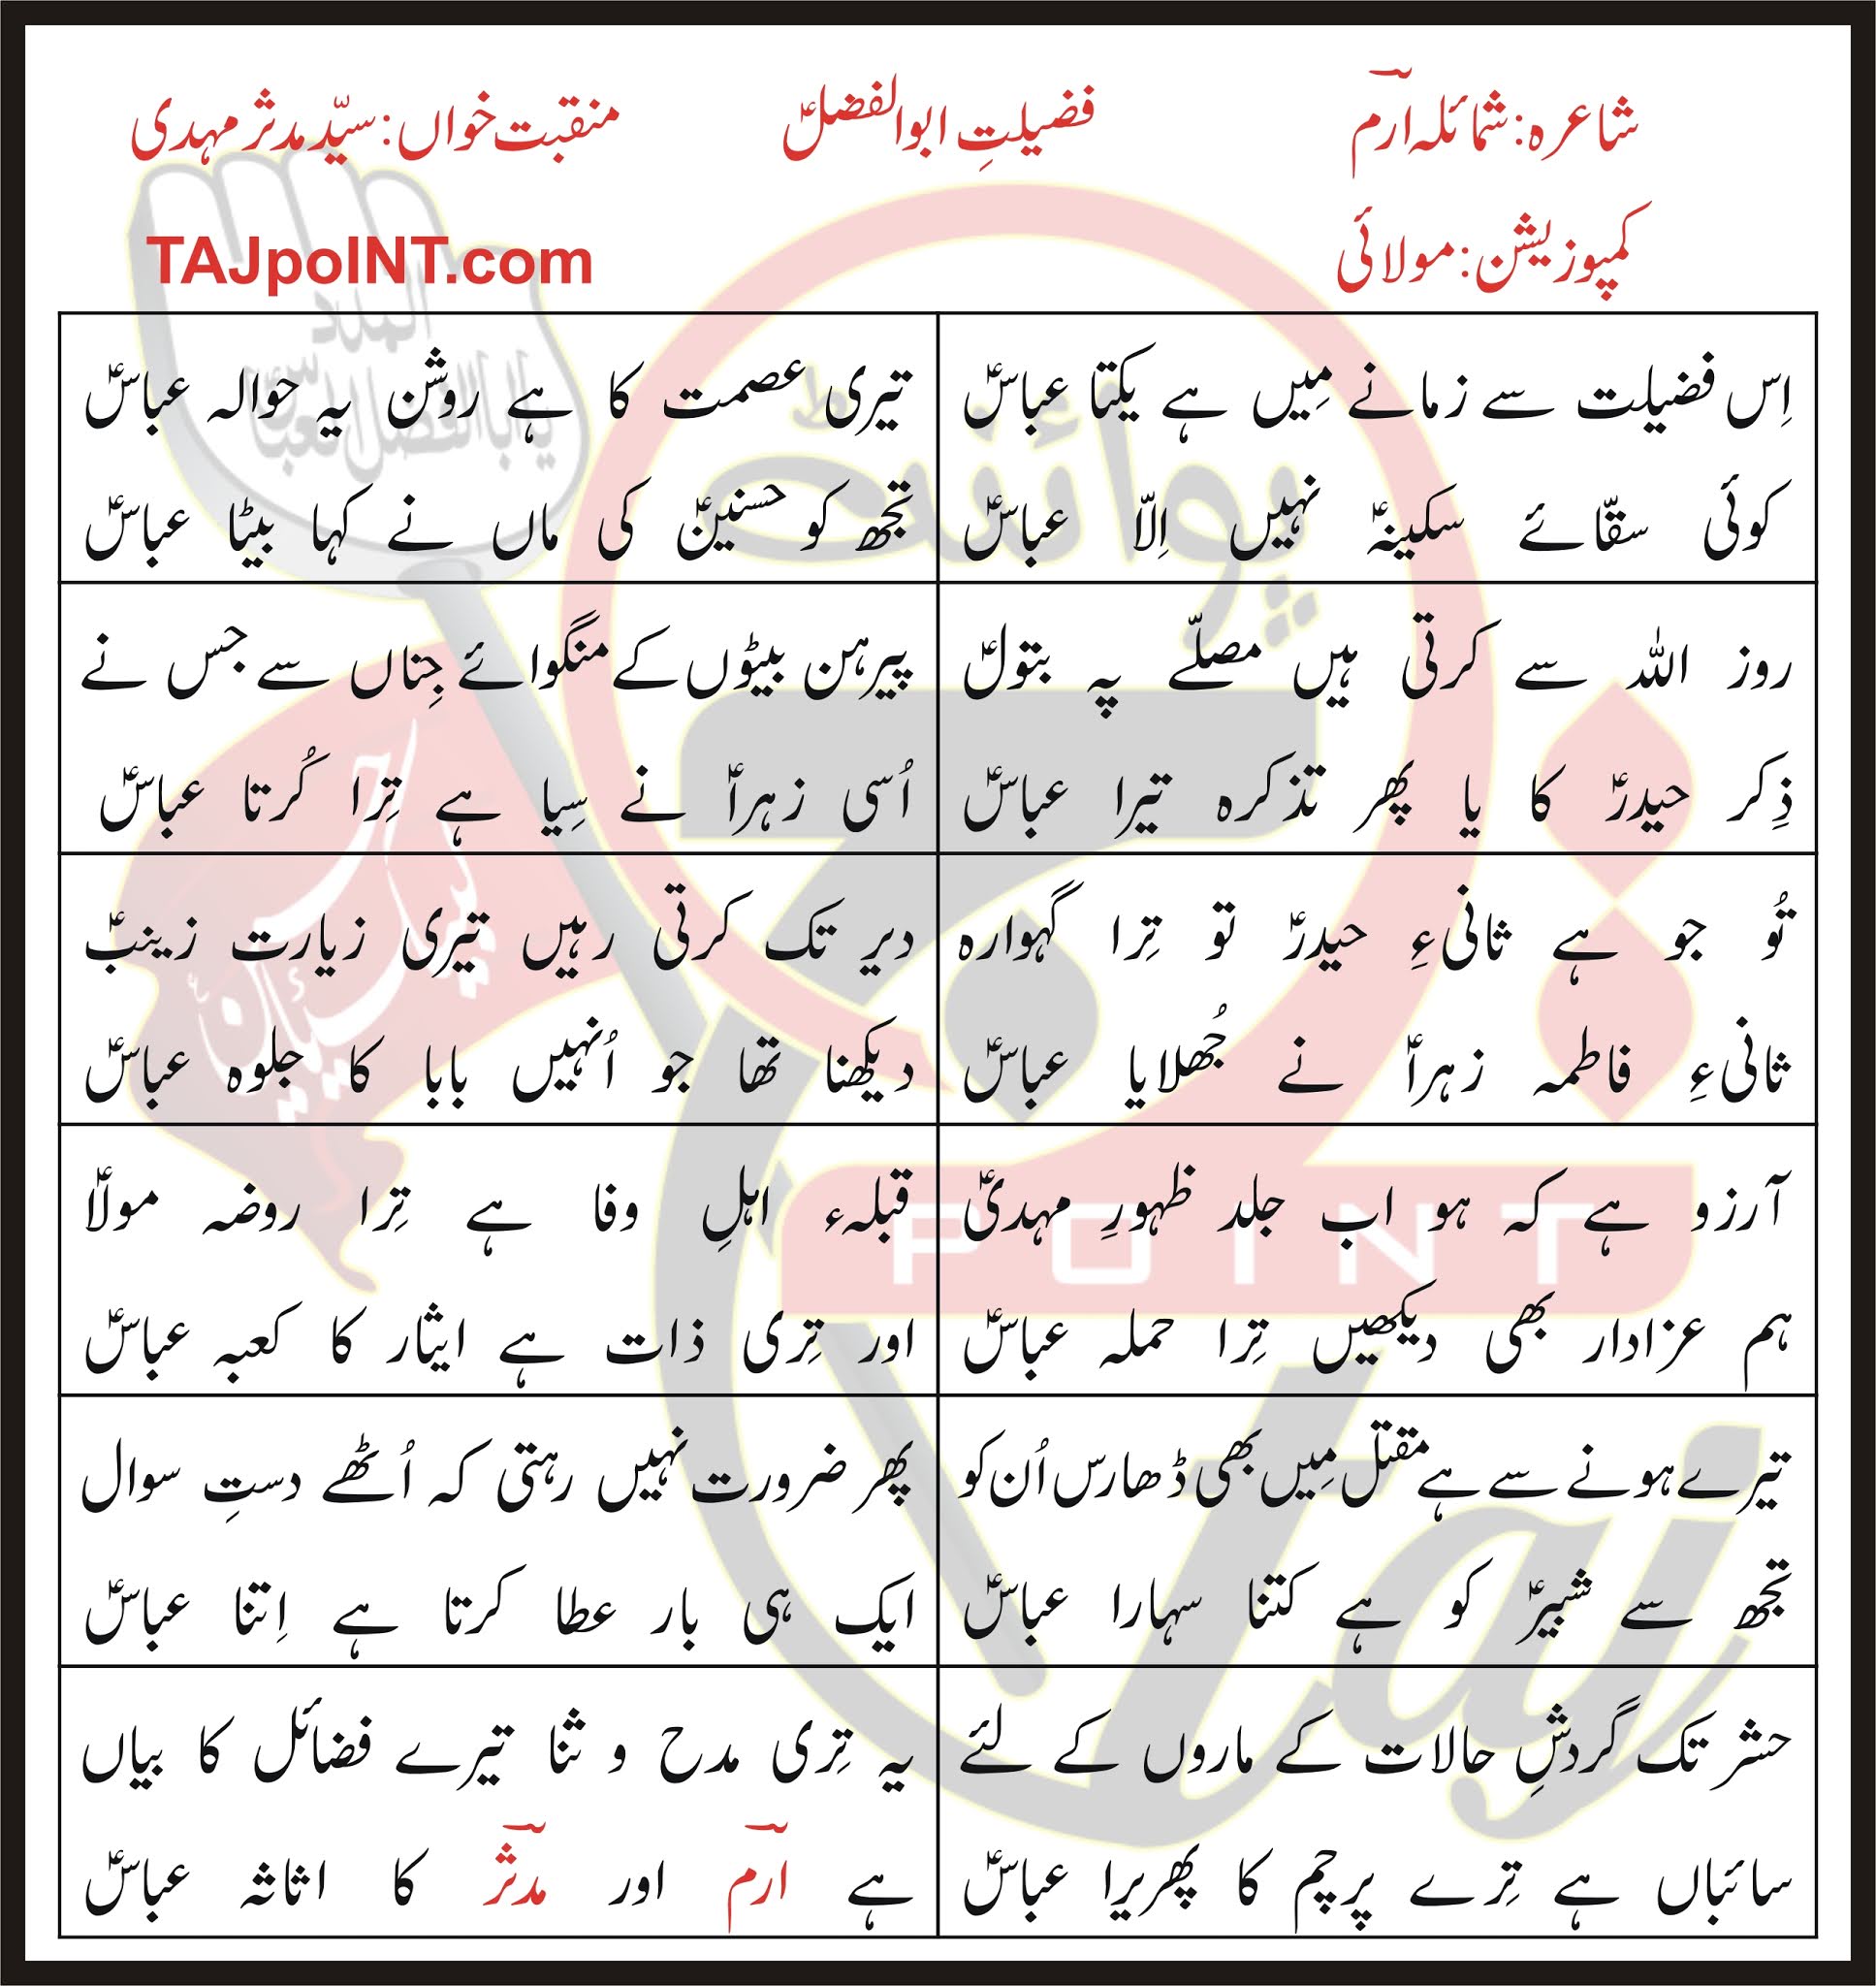 شاعرہ: شمائلہ ارمؔ
فضیلتِ ابوالفضلؑ
منقبت خواں: سیّد مدثر مہدی
کمپوزیشن: مولائی
TAJpoINT.com
اِس فضیلت سے زمانے مِیں ہے یکتا عباسؑ
کوئی سقّائے سکینہؑ نہیں اِلّا عباسؑ
تیری عصمت کا ہے روشن یہ حوالہ عباسؑ
تجھ کو حسنینؑ کی ماں نے کہا بیٹا عباسؑ
روز اللہ سے کرتی ہیں مصلّے پہ بتولؑ
ذِکر حیدرؑ کا یا پھر تذکرہ تیرا عباسؑ
پیرہن بیٹوں کے منگوائے جِناں سے جس نے
اُسی زہراؑ نے سِیا ہے تِرا کُرتا عباسؑ
تُو جو ہے ثانیءِ حیدرؑ تو تِرا گہوارہ
ثانیءِ فاطمہ زہراؑ نے جُھلایا عباسؑ
دیر تک کرتی رہیں تیری زیارت زینبؑ
دیکھنا تھا جو اُنہیں بابا کا جلوہ عباسؑ
آرزو ہے کہ ہو اب جلد ظہورِ مہدیؑ
ہم عزادار بھی دیکھیں تِرا حملہ عباسؑ
قبلہء اہلِ وفا ہے تِرا روضہ مولاؑ
اور تِری ذات ہے ایثار کا کعبہ عباسؑ
تیرے ہونے سے ہے مقتل مِیں بھی ڈھارس اُن کو
تجھ سے شبیرؑ کو ہے کتنا سہارا عباسؑ
پھر ضرورت نہیں رہتی کہ اُٹھے دستِ سوال
ایک ہی بار عطا کرتا ہے اِتنا عباسؑ
حشر تک گردشِ حالات کے ماروں کے لئے
سائباں ہے تِرے پرچم کا پھریرا عباسؑ
یہ تِری مدح و ثنا تیرے فضائل کا بیاں
ہے ارمؔ اور مدثرؔ کا اثاثہ عباسؑ
پوائنٹ
POINT
Taj